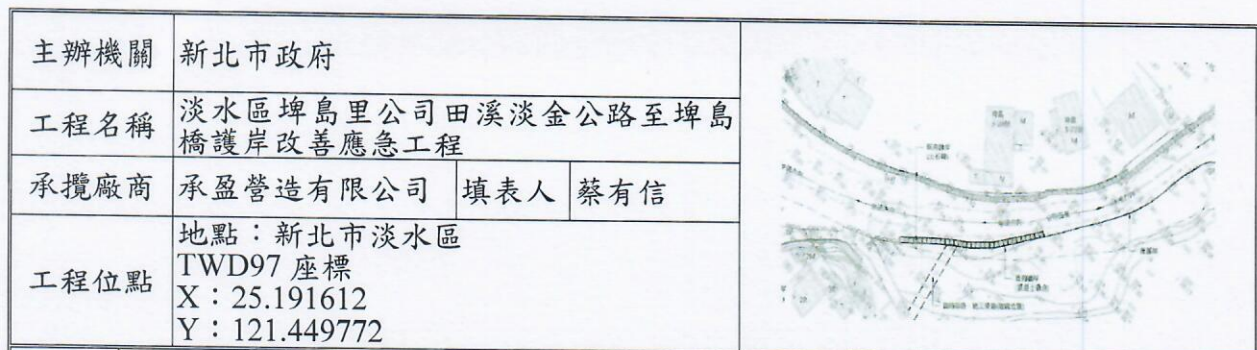 主辦機關
新北市政府
工程名稱
淡水區埤島里公司田溪淡金公路至埤島
橋護岸改善應急工程
承攬廠商
承盈營造有限公司
填表人
蔡有信
工程位點
地點：新北市淡水區
TWD97 座標
X：25.191612
Y：121.449772